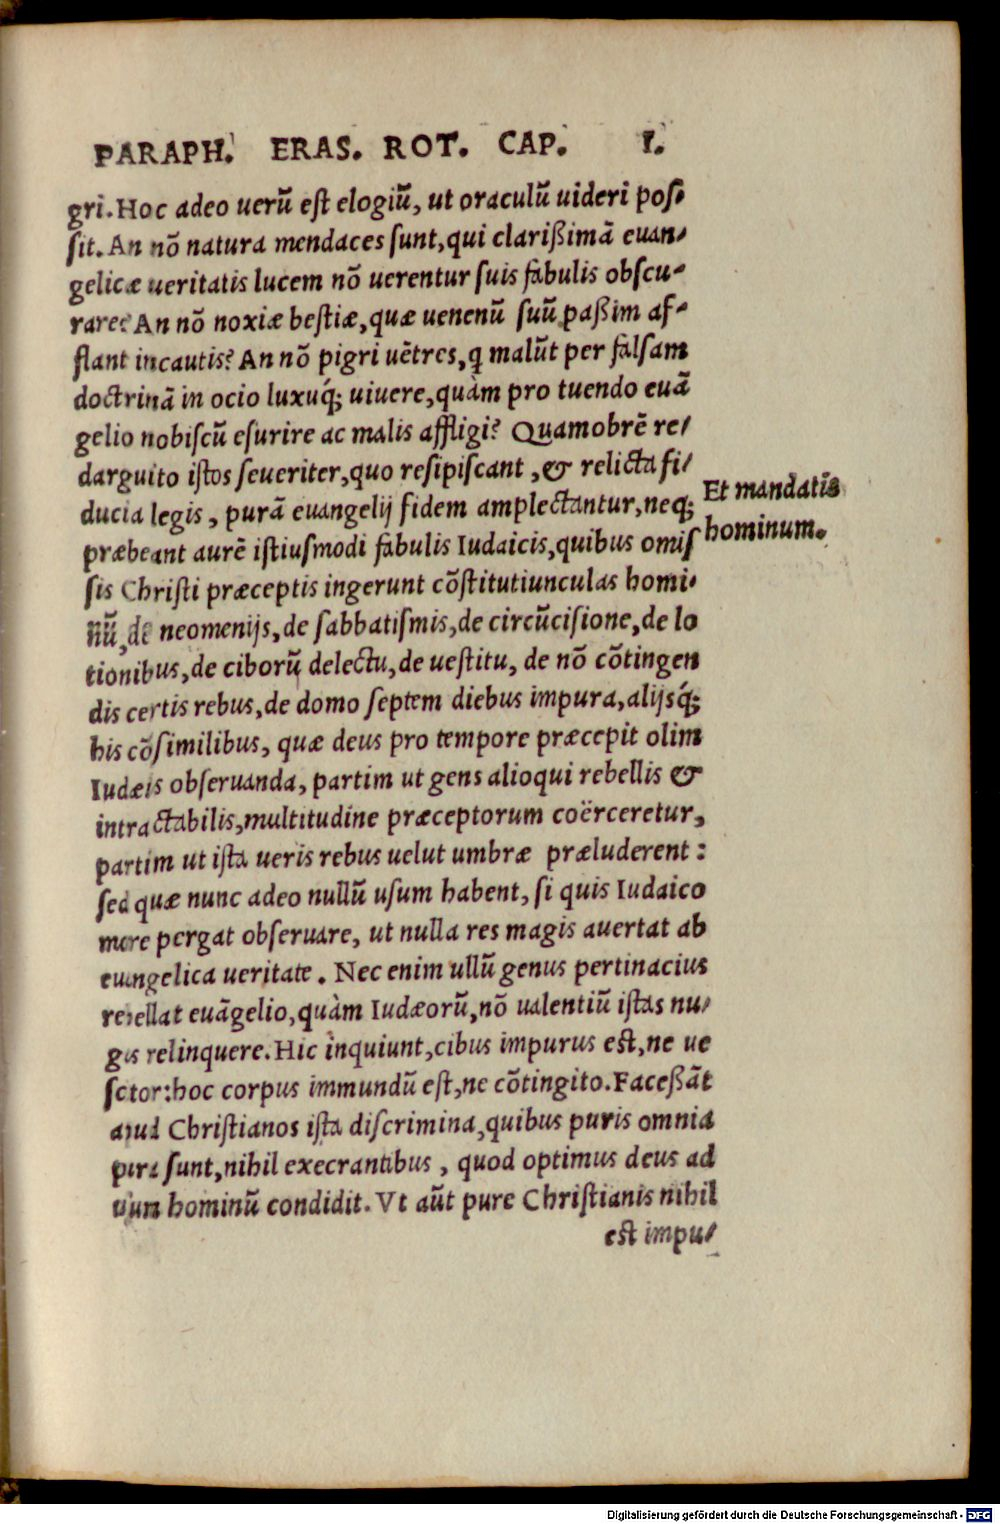 PARAPH. ERAS. ROT. CAP. I.
gri. Hoc adeo uerũ est elogiũ, ut oraculũ uideri pos-
sit. An nõ natura mendaces sunt, qui clarißimã euan-
gelicæ ueritatis lucem nõ uerentur suis fabulis obscu-
rare? An nõ noxiæ bestiæ, quæ uenenũ suũ paßim af-
flant incautis? An nõ pigri uẽtres, q malũt per falsam
doctrinã in ocio luxuq́; uiuere, quàm pro tuendo euã
gelio nobiscũ esurire ac malis affligi? Quamobrẽ re-
darguito istos seueriter, quo resipiscant, & relicta fi-
ducia legis, purã euangelij fidem amplectantur, neq;
Et mandatis
præbeant aurẽ istiusmodi fabulis Iudaicis, quibus omis
hominum.
sis Christi præceptis ingerunt cõstitutiunculas homi-
nũ, de neomenijs, de sabbatismis, de circũcisione, de lo
tionibus, de ciborũ delectu, de uestitu, de nõ cõtingen
dis certis rebus, de domo septem diebus impura, alijsq́;
his cõsimilibus, quæ deus pro tempore præcepit olim
Iudæis obseruanda, partim ut gens alioqui rebellis &
intractabilis, multitudine præceptorum coërceretur,
partim ut ista ueris rebus uelut umbræ præluderent:
sed quæ nunc adeo nullũ usum habent, si quis Iudaico
more pergat obseruare, ut nulla res magis auertat ab
euangelica ueritate. Nec enim ullũ genus pertinacius
rebellat euãgelio, quàm Iudæorũ, nõ ualentiũ istas nu-
gas relinquere. Hic inquiunt, cibus impurus est, ne ue
sctor: hoc corpus immundũ est, ne cõtingito. Faceßãt
apud Christianos ista discrimina, quibus puris omnia
pura sunt, nihil execrantibus, quod optimus deus ad
usum hominũ condidit. Vt aũt pure Christianis nihil
est impu-
Digitalisierung gefördert durch die Deutsche Forschungsgemeinschaft - DFG